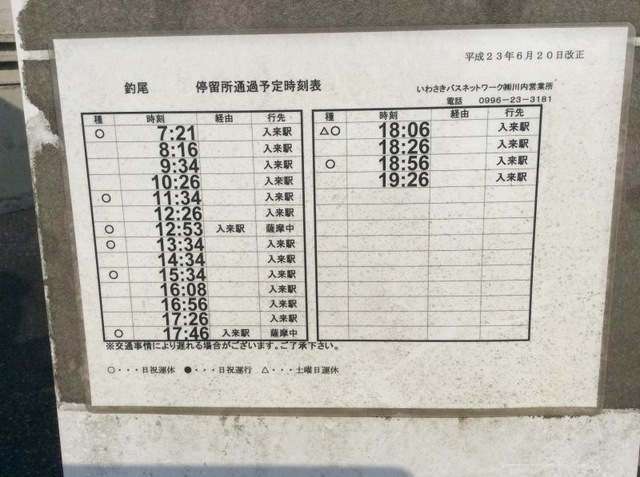 平成23年6月20日改正
釣尾 停留所通過予定時刻表
いわさきバスネットワーク㈱川内営業所
電話 0996-23-3181
種 時刻 経由 行先
○ 7:21 入来駅
8:16 入来駅
9:34 入来駅
10:26 入来駅
○ 11:34 入来駅
12:26 入来駅
○ 12:53 入来駅 薩摩中
○ 13:34 入来駅
14:34 入来駅
○ 15:34 入来駅
16:08 入来駅
16:56 入来駅
17:26 入来駅
○ 17:46 入来駅 薩摩中
種 時刻 経由 行先
△○ 18:06 入来駅
18:26 入来駅
○ 18:56 入来駅
19:26 入来駅
※交通事情により遅れる場合がございます。ご了承下さい。
○・・・日祝運休 ●・・・日祝運行 △・・・土曜日運休